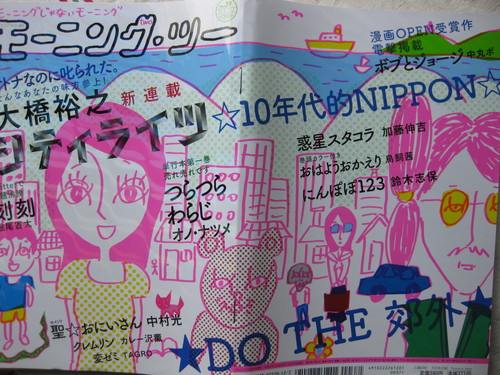 モーニングじゃないモーニング
モーニング・ツー
two
漫画OPEN受賞作
電撃掲載
ボブとジョージ 中丸ボ
オトナなのに叱られた。
そんなあなたの味方参上!
大橋裕之 新連載
シティライツ
☆10年代的NIPPON☆
惑星スタコラ 加藤伸吉
巻頭カラー付き
おはようおかえり 鳥飼茜
にんぽぽ123 鈴木志保
単行本第一巻
売れ売れです
つらつら
わらじ
オノ・ナツメ
刻刻
堀尾省太
聖☆おにいさん 中村光
クレムリン カレー沢薫
変ゼミ TAGRO
★DO THE 郊外★